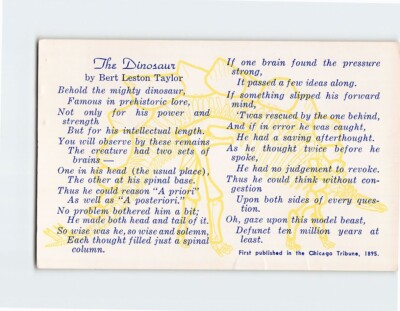 The Dinosaur
by Bert Leston Taylor
Behold the mighty dinosaur,
Famous in prehistoric lore,
Not only for his power and
strength
But for his intellectual length.
You will observe by these remains
The creature had two sets of
brains —
One in his head (the usual place),
The other at his spinal base.
Thus he could reason "A priori"
As well as "A posteriori."
No problem bothered him a bit;
He made both head and tail of it.
So wise was he, so wise and solemn,
Each thought filled just a spinal
column.
If one brain found the pressure
strong,
It passed a few ideas along.
If something slipped his forward
mind,
'Twas rescued by the one behind,
And if in error he was caught,
He had a saving afterthought.
As he thought twice before he
spoke,
He had no judgment to revoke.
Thus he could think without con-
gestion
Upon both sides of every ques-
tion.
Oh, gaze upon this model beast,
Defunct ten million years at
least.
First published in the Chicago Tribune, 1895.